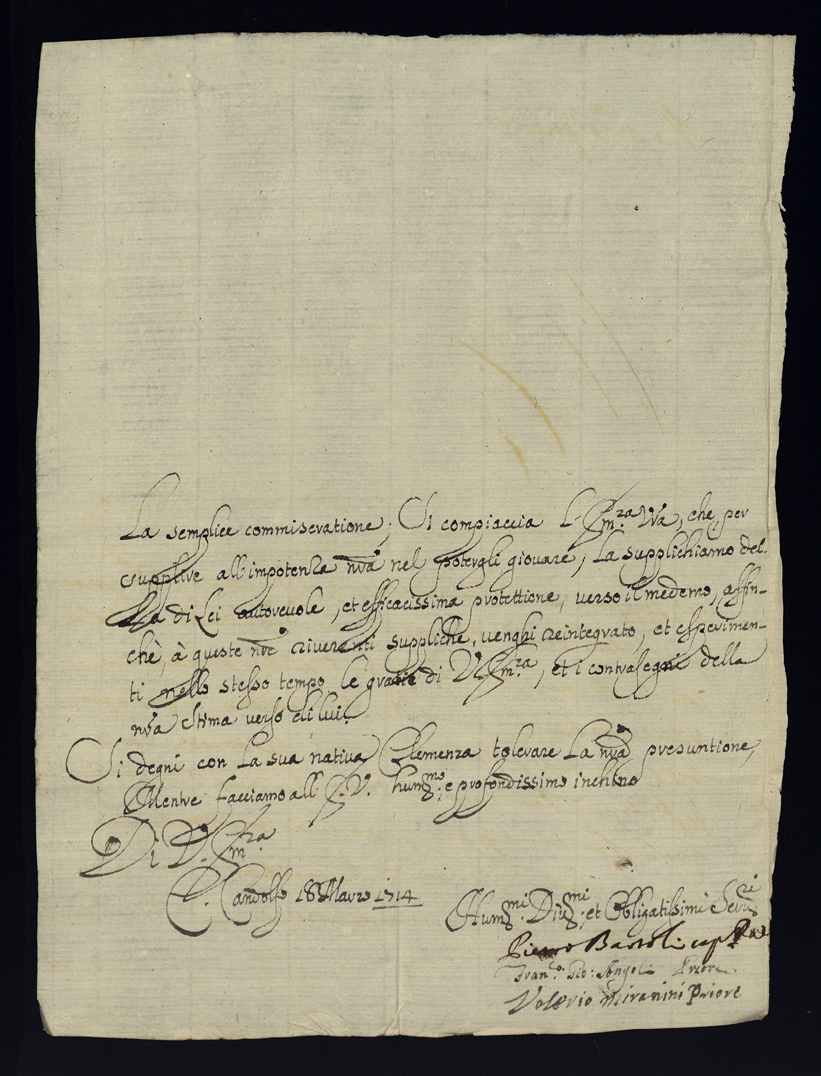 La semplice commiseratione; Si compiaccia L'Em.za Vra, che per
supplire all'impotenza nrã nel potergli giovare, La supplichiamo del
La di Lei autorevole, et efficacissima protettione, verso il medemo, affin-
chè, à queste nrẽ riverenti suppliche, venghi reintegrato, et esperimen-
ti nello stesso tempo le gratie di V. Em.za, et i contrasegni della
nrã stima verso di lui.
Si degni con La sua nativa Clemenza tolerare La nrã presuntione,
Mentre facciamo all'E. V. hum.mo, e profondissimo inchino
Di V. Em.za
C. Gandolfo 18 Marzo 1714
Hum.mi Div.mi, et Obligatissimi Servi.ri
Pietro Bartoli cap.
Fran.o Angeli Priore
Valerio Miranini Priore